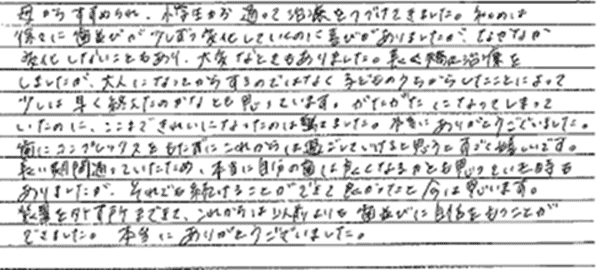 母からすすめられ、小学生から通って治療をつづけてきました。初めは
徐々に歯並びが少しずつ変化していくのに喜びがありましたが、なかなか
変化しないこともあり、大変なときもありました。長く矯正治療を
しましたが、大人になってからするのではなく子どものうちからしたことによって
少しは早く終えたのかなとも思っています。がたがたになってしまって
いたのに、ここまできれいになったのは驚きました。本当にありがとうございました。
歯にコンプレックスをもたずにこれからは過ごしていけると思うとすごく嬉しいです。
長い期間通っていたため、本当に自分の歯は良くなるかとも思っていた時も
ありましたが、それでも続けることができて良かったと今は思います。
装置を外す所まできて、これからは以前よりも歯並びに自信をもつことが
できました。本当にありがとうございました。